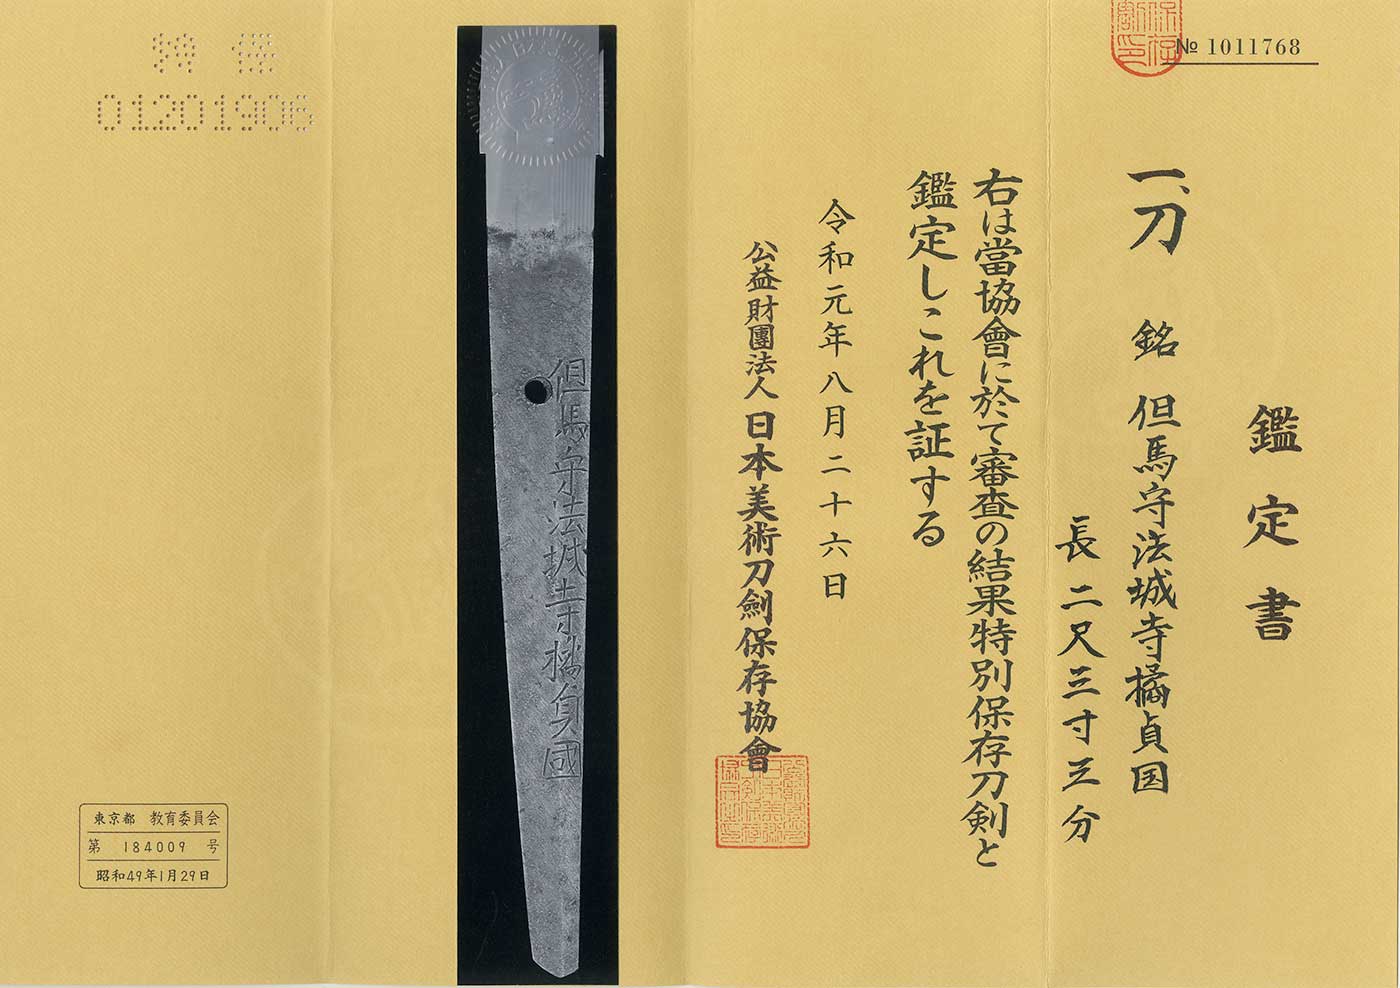 № 1011768
鑑定書
一、刀 銘 但馬守法城寺橘貞国
長 二尺三寸三分
右は當協會に於て審査の結果特別保存刀剣と
鑑定しこれを証する
令和元年八月二十六日
公益財團法人 日本美術刀劍保存協會
但馬守法城寺橘貞國
01201906
東京都 教育委員会
第 184009 号
昭和49年1月29日